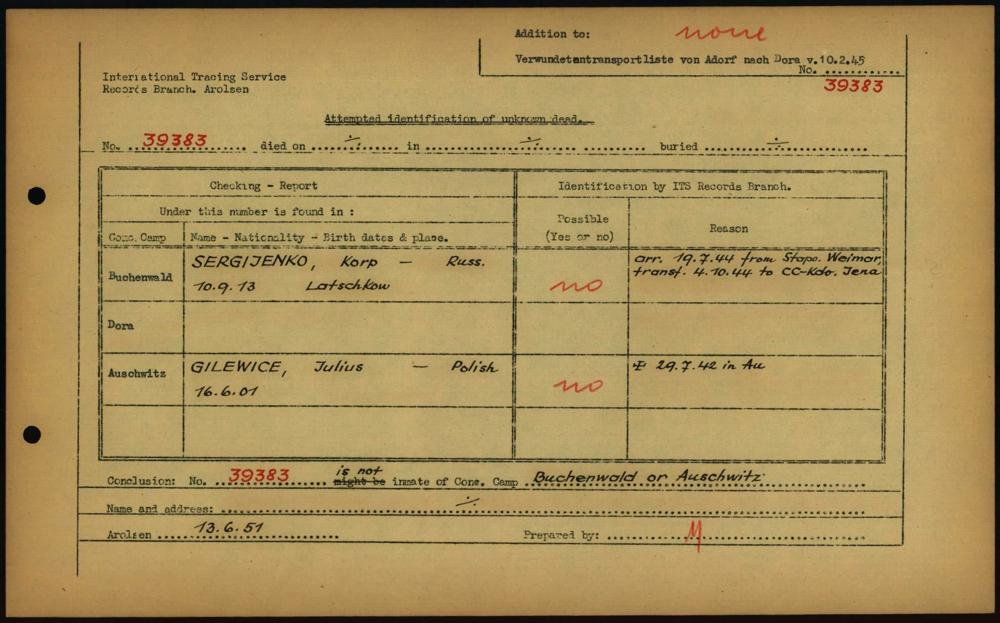 Addition to: none
Verwundetentransportliste von Adorf nach Dora v.10.2.45
No. ............
39383
International Tracing Service
Records Branch. Arolsen
Attempted identification of unknown dead.
No. 39383 died on ÷ in ÷ buried ÷
Checking - Report
Identification by ITS Records Branch.
Under this number is found in :
Possible
(Yes or no)
Reason
Conc. Camp
Name - Nationality - Birth dates & place.
Buchenwald
SERGIJENKO, Korp — Russ.
10.9.13 Latschkow
no
arr. 19.7.44 from Stapo. Weimar,
transf. 4.10.44 to CC-Kdo. Jena
Dora
Auschwitz
GILEWICE, Julius — Polish
16.6.01
no
29.7.42 in Au
Conclusion: No. 39383 is not might be inmate of Conc. Camp Buchenwald or Auschwitz
Name and address: ÷
Arolsen 13.6.51
Prepared by: M